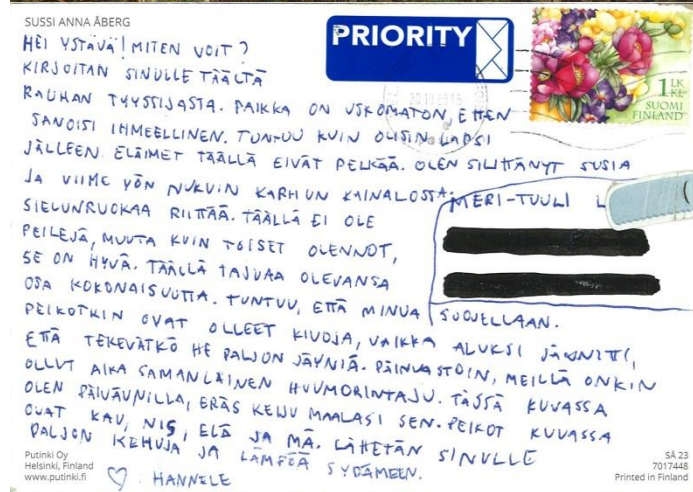 SUSSI ANNA ÅBERG
PRIORITY
1 LK
KL
SUOMI
FINLAND
HEI YSTÄVÄ! MITEN VOIT?
KIRJOITAN SINULLE TÄÄLTÄ
RAUHAN TYYSSIJASTA. PAIKKA ON USKOMATON, ELLEN
SANOISI IHMEELLINEN. TUNTUU KUIN OLISIN LAPSI
JÄLLEEN. ELÄIMET TÄÄLLÄ EIVÄT PELKÄÄ. OLEN SILITTÄNYT SUSIA
JA VIIME YÖN NUKUIN KARHUN KAINALOSSA.
SIELUNRUOKAA RIITTÄÄ. TÄÄLLÄ EI OLE
PEILEJÄ, MUUTA KUIN TOISET OLENNOT,
SE ON HYVÄ. TÄÄLLÄ TAJUAA OLEVANSA
OSA KOKONAISUUTTA. TUNTUU, ETTÄ MINUA SUOJELLAAN.
PEIKOTKIN OVAT OLLEET KIVOJA, VAIKKA ALUKSI JÄNNITTI,
ETTÄ TEKEVÄTKÖ HE PALJON JÄYNIÄ. PÄINVASTOIN, MEILLÄ ONKIN
OLLUT AIKA SAMANLAINEN HUUMORINTAJU. TÄSSÄ KUVASSA
OLEN PÄIVÄUNILLA, ERÄS KEIJU MAALASI SEN. PEIKOT KUVASSA
OVAT KAU, NIS, ELÄ JA MÄ. LÄHETÄN SINULLE
PALJON KEHUJA JA LÄMPÖÄ SYDÄMEEN.
♡ HANNELE
MERI-TUULI L
Putinki Oy
Helsinki, Finland
www.putinki.fi
SÅ 23
7017448
Printed in Finland